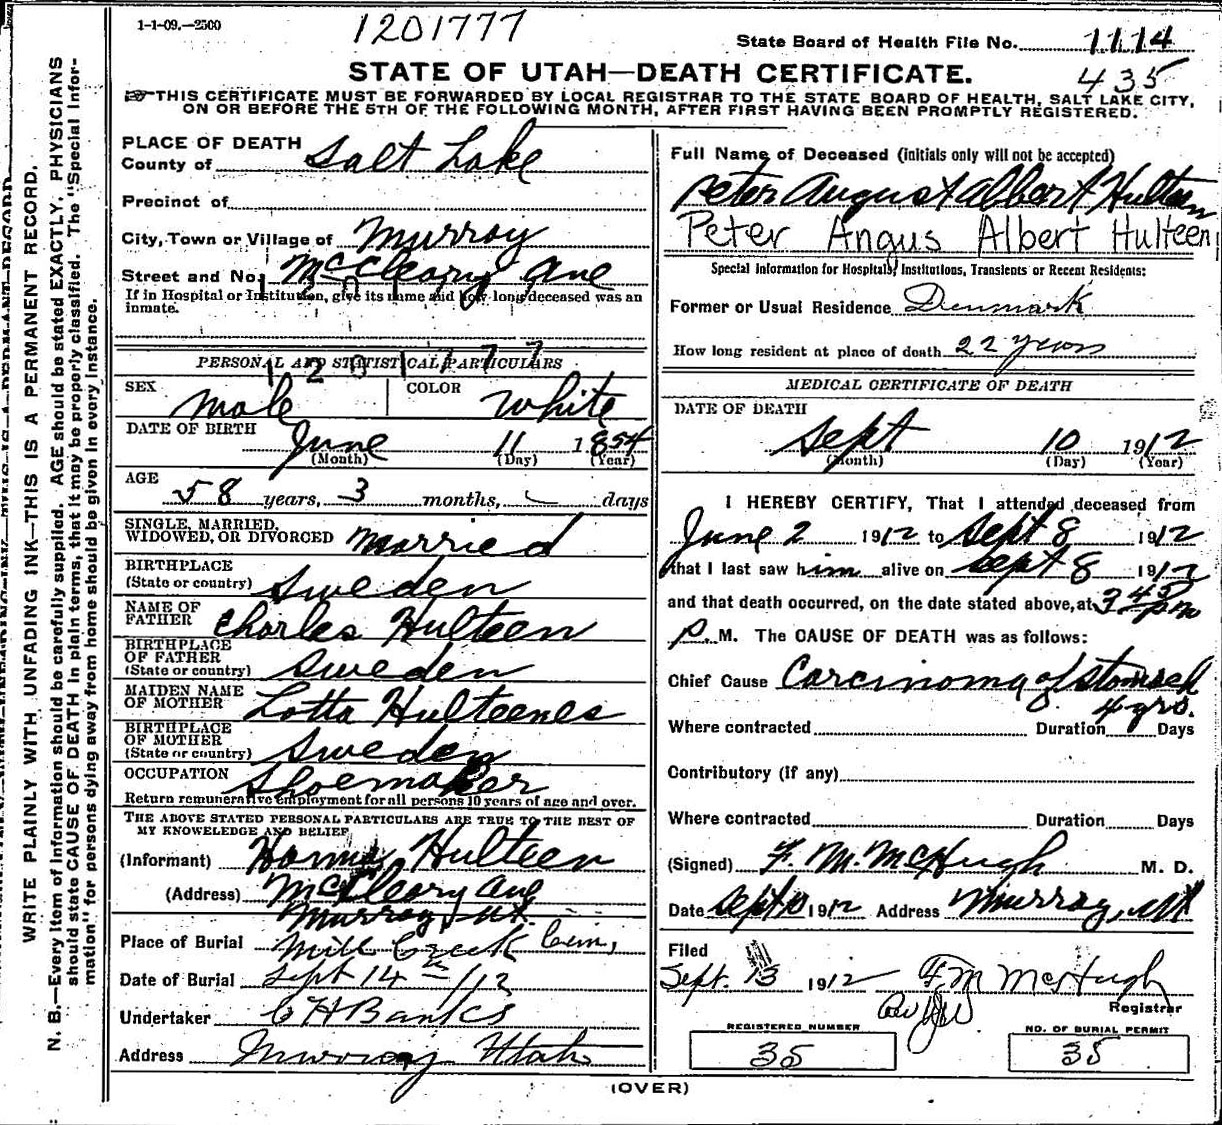 1-1-09.—2500
1201777
State Board of Health File No. 1114
435
STATE OF UTAH—DEATH CERTIFICATE.
THIS CERTIFICATE MUST BE FORWARDED BY LOCAL REGISTRAR TO THE STATE BOARD OF HEALTH, SALT LAKE CITY,
ON OR BEFORE THE 5TH OF THE FOLLOWING MONTH, AFTER FIRST HAVING BEEN PROMPTLY REGISTERED.
WRITE PLAINLY WITH UNFADING INK—THIS IS A PERMANENT RECORD.
N. B.—Every item of information should be carefully supplied. AGE should be stated EXACTLY. PHYSICIANS
should state CAUSE OF DEATH in plain terms, that it may be properly classified. The "Special Infor-
mation" for persons dying away from home should be given in every instance.
PLACE OF DEATH
County of Salt Lake
Precinct of
City, Town or Village of Murray
Street and No. McCleary Ave
If in Hospital or Institution, give its name and how long deceased was an
inmate.
PERSONAL AND STATISTICAL PARTICULARS
1201777
SEX male COLOR white
DATE OF BIRTH
June 11 1854
(Month) (Day) (Year)
AGE
58 years, 3 months, days
SINGLE, MARRIED,
WIDOWED, OR DIVORCED married
BIRTHPLACE
(State or country) Sweden
NAME OF
FATHER Charles Hulteen
BIRTHPLACE
OF FATHER
(State or country) Sweden
MAIDEN NAME
OF MOTHER Lotta Hulteenes
BIRTHPLACE
OF MOTHER
(State or country) Sweden
OCCUPATION Shoemaker
Return remunerative employment for all persons 10 years of age and over.
THE ABOVE STATED PERSONAL PARTICULARS ARE TRUE TO THE BEST OF
MY KNOWELEDGE AND BELIEF
(Informant) Hulteen
(Address) McCleary Ave
Murray, Ut.
Place of Burial Mill Creek Cem,
Date of Burial Sept 14th /12
Undertaker C H Banks
Address Murray Utah
Full Name of Deceased (initials only will not be accepted)
Peter August Albert Hulteen
Peter Angus Albert Hulteen
Special Information for Hospitals, Institutions, Transients or Recent Residents:
Former or Usual Residence Denmark
How long resident at place of death 22 years
MEDICAL CERTIFICATE OF DEATH
DATE OF DEATH
Sept 10 1912
(Month) (Day) (Year)
I HEREBY CERTIFY, That I attended deceased from
June 2 1912 to Sept 8 1912
that I last saw him alive on Sept 8 1912
and that death occurred, on the date stated above, at 3 45 pm
P. M. The CAUSE OF DEATH was as follows:
Chief Cause Carcinoma of Stomach
4 yrs.
Where contracted Duration Days
Contributory (If any)
Where contracted Duration Days
(Signed) F. M. McHugh M. D.
Date Sept 10 1912 Address Murray, Ut
Filed
Sept. 13 1912 F M McHugh
Registrar
REGISTERED NUMBER
35
NO. OF BURIAL PERMIT
35
(OVER)